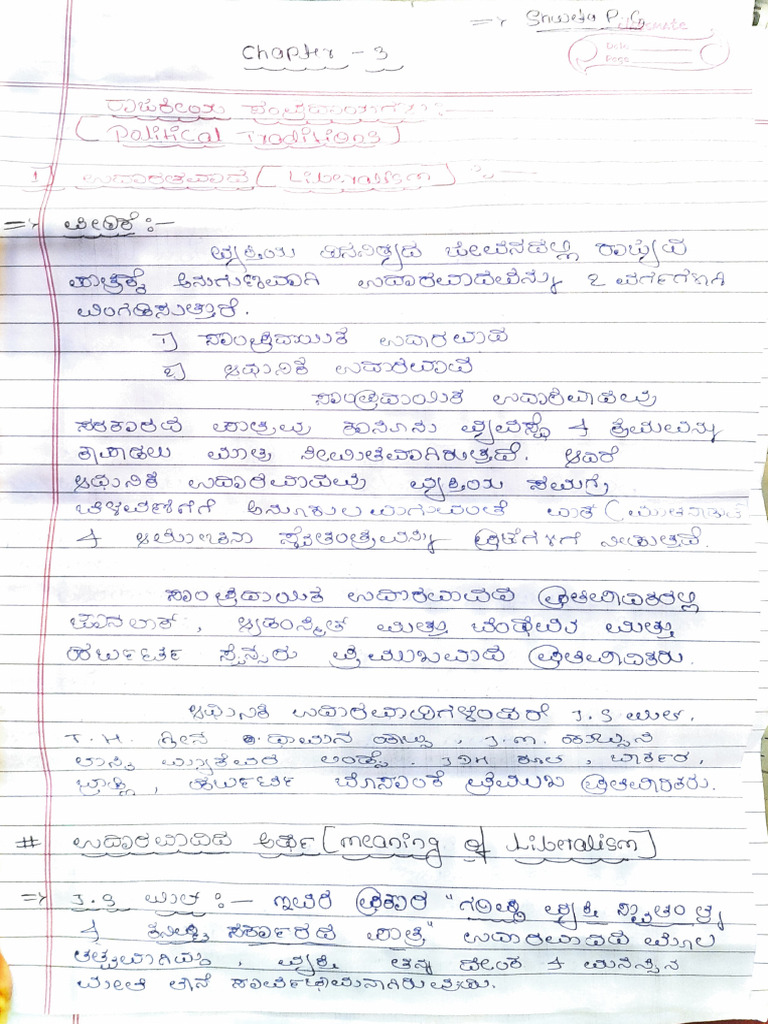 => Shweta P.G
Date
Page
Chapter - 3
ರಾಜಕೀಯ ಸಂಪ್ರದಾಯಗಳು :-
(Political Traditions)
1) ಉದಾರತವಾದ (Liberalism) :-
=> ಪೀಠಿಕೆ :-
ವ್ಯಕ್ತಿಯ ದಿನನಿತ್ಯದ ಜೀವನದಲ್ಲಿ ರಾಜ್ಯದ
ಪಾತ್ರಕ್ಕೆ ಅನುಗುಣವಾಗಿ ಉದಾರವಾದವನ್ನು 2 ವರ್ಗಗಳಾಗಿ
ವಿಂಗಡಿಸುತ್ತಾರೆ.
1) ಸಾಂಪ್ರದಾಯಿಕ ಉದಾರವಾದ
2) ಆಧುನಿಕ ಉದಾರವಾದ
ಸಾಂಪ್ರದಾಯಿಕ ಉದಾರವಾದವು
ಸರಕಾರದ ಪಾತ್ರವು ಕಾನೂನು ವ್ಯವಸ್ಥೆ & ಕ್ರಮವನ್ನು
ಕಾಪಾಡಲು ಮಾತ್ರ ಸೀಮಿತವಾಗಿರುತ್ತದೆ. ಆದರೆ
ಆಧುನಿಕ ಉದಾರವಾದವು ವ್ಯಕ್ತಿಯ ಸಮಗ್ರ
ಬೆಳವಣಿಗೆಗೆ ಅನೂಕುಲವಾಗುವಂತೆ ವಾಕ್ (ಮಾತನಾಡುವ
& ಆಲೋಚನಾ ಸ್ವಾತಂತ್ರ್ಯವನ್ನು ಪ್ರಜೆಗಳಿಗೆ ನೀಡುತ್ತದೆ.
ಸಾಂಪ್ರದಾಯಿಕ ಉದಾರವಾದದ ಪ್ರತಿಪಾದಕರಲ್ಲಿ
ಜಾನಲಾಕ್, ಆ್ಯಡಂಸ್ಮಿತ್ ಮತ್ತು ಬೆಂಥಮ್ ಮತ್ತು
ಹರ್ಬರ್ಟ್ ಸ್ಪೆನ್ಸರು ಪ್ರಮುಖವಾದ ಪ್ರತಿಪಾದಕರು.
ಆಧುನಿಕ ಉದಾರವಾದಿಗಳೆಂದರೆ J.S ಮಿಲ್,
T.H. ಗ್ರೀನ್ J.M.
ಲಾಸ್ಕಿ ಬಾರ್ಕರ,
ಪ್ರಮುಖ ಪ್ರತಿಪಾದಕರು.
# ಉದಾರವಾದದ ಅರ್ಥ (meaning of Liberalism)
=> J.S ಮಿಲ್ :- ಇವರ ಪ್ರಕಾರ "ಗರಿಷ್ಠ ವ್ಯಕ್ತಿ ಸ್ವಾತಂತ್ರ್ಯ
& ಕನಿಷ್ಠ ಸರ್ಕಾರದ ಪಾತ್ರ" ಉದಾರವಾದದ ಮೂಲ
ತತ್ವವಾಗಿದ್ದು, ವ್ಯಕ್ತಿ ತನ್ನ ದೇಹ & ಮನಸ್ಸಿನ
ಮೇಲೆ ತಾನೆ ಸಾರ್ವಭೌಮನಾಗಿರುವನು.